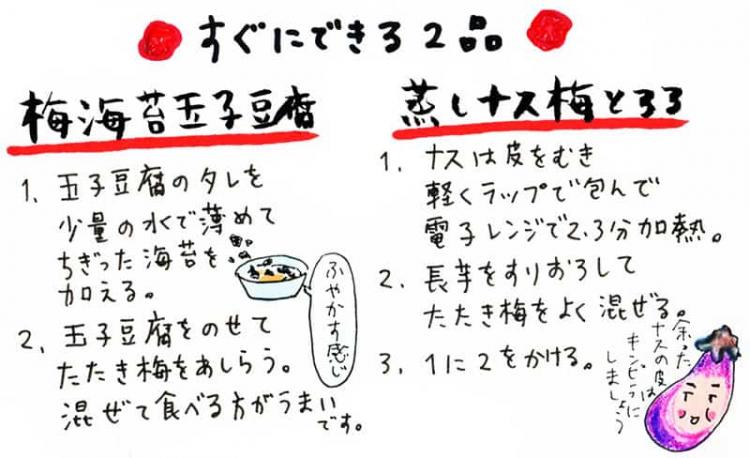 すぐにできる2品
梅海苔玉子豆腐
1、玉子豆腐のタレを
少量の水で薄めて
ちぎった海苔を
加える。
ふやかす感じ
2、玉子豆腐をのせて
たたき梅をあしらう。
混ぜて食べる方がうまいです。
蒸しナス梅とろろ
1、ナスは皮をむき
軽くラップで包んで
電子レンジで2.3分加熱。
2、長芋をすりおろして
たたき梅をよく混ぜる。
3、1に2をかける。
余った
ナスの皮は
キンピラに
しましょう